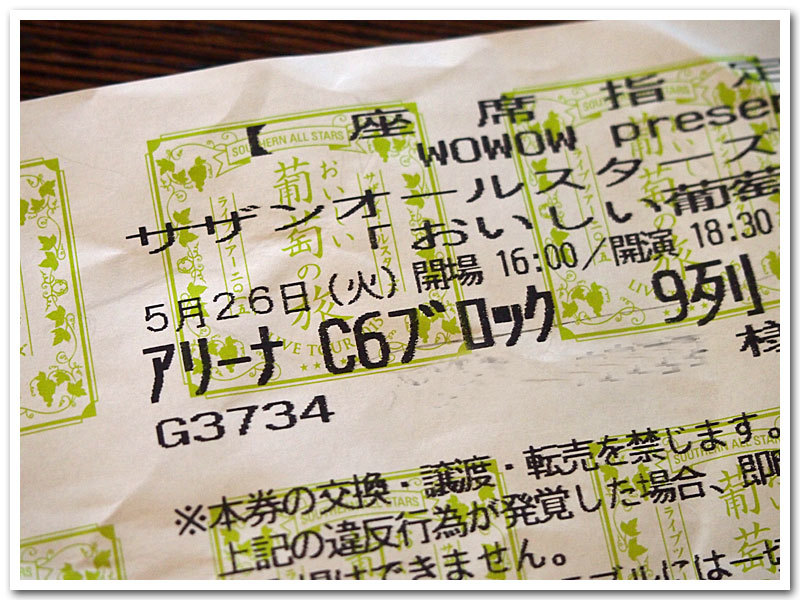 【座席指定
WOWOW prese
サザンオールスターズ
「おいしい葡萄
5月26日(火) 開場 16:00/開演 18:30
アリーナ C6ブロック 9列
様
G3734
※本券の交換・譲渡・転売を禁じます。
上記の違反行為が発覚した場合、即
はできません。
ブルには一切
SOUTHERN ALL STARS
おいしい葡萄の旅
サザンオールスターズ
ライブツアー二〇一五
LIVE TOUR